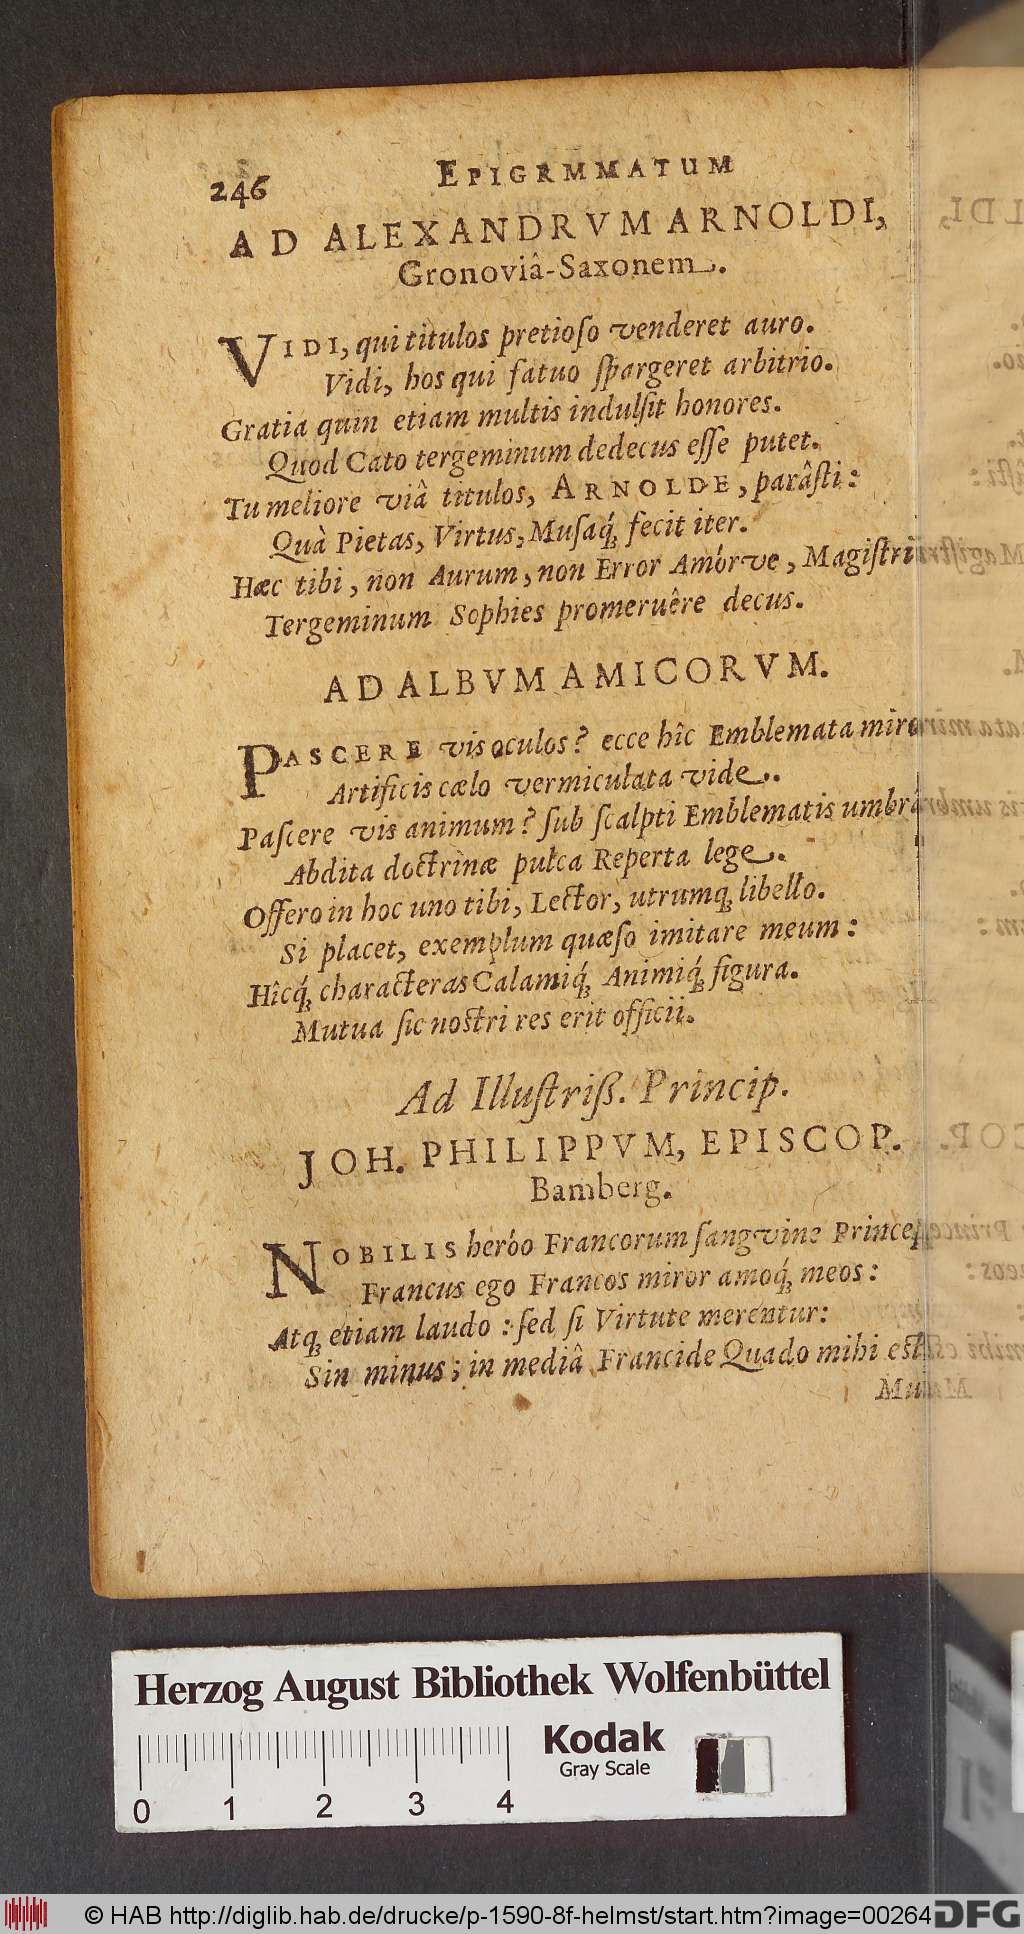 246
EPIGRMMATUM
AD ALEXANDRVM ARNOLDI,
Gronoviâ-Saxonem.
VIDI, qui titulos pretioſo venderet auro.
Vidi, hos qui fatuo ſpargeret arbitrio.
Gratia quin etiam multis indulſit honores.
Quod Cato tergeminum dedecus eſſe putet.
Tu meliore viâ titulos, ARNOLDE, parâſti:
Quà Pietas, Virtus, Muſaq́; fecit iter.
Hæc tibi, non Aurum, non Error Amórve, Magiſtri
Tergeminum Sophies promeruêre decus.
AD ALBVM AMICORVM.
PASCERE vis oculos? ecce hîc Emblemata miro
Artificis cælo vermiculata vide.
Paſcere vis animum? ſub ſcalpti Emblematis umbrâ
Abdita doctrinæ pulca Reperta lege.
Offero in hoc uno tibi, Lector, utrumq; libello.
Si placet, exemplum quæſo imitare meum:
Hîcq́; characteras Calamiq́; Animiq́; figura.
Mutua ſic noſtri res erit officii.
Ad Illuſtriß. Princip.
JOH. PHILIPPVM, EPISCOP.
Bamberg.
NOBILIS heróo Francorum ſangvine Princeps
Francus ego Francos miror amoq́; meos:
Atq; etiam laudo: ſed ſi Virtute merentur:
Sin minus; in mediâ Francide Quado mihi eſt
Herzog August Bibliothek Wolfenbüttel
Kodak
Gray Scale
0 1 2 3 4
© HAB http://diglib.hab.de/drucke/p-1590-8f-helmst/start.htm?image=00264
DFG